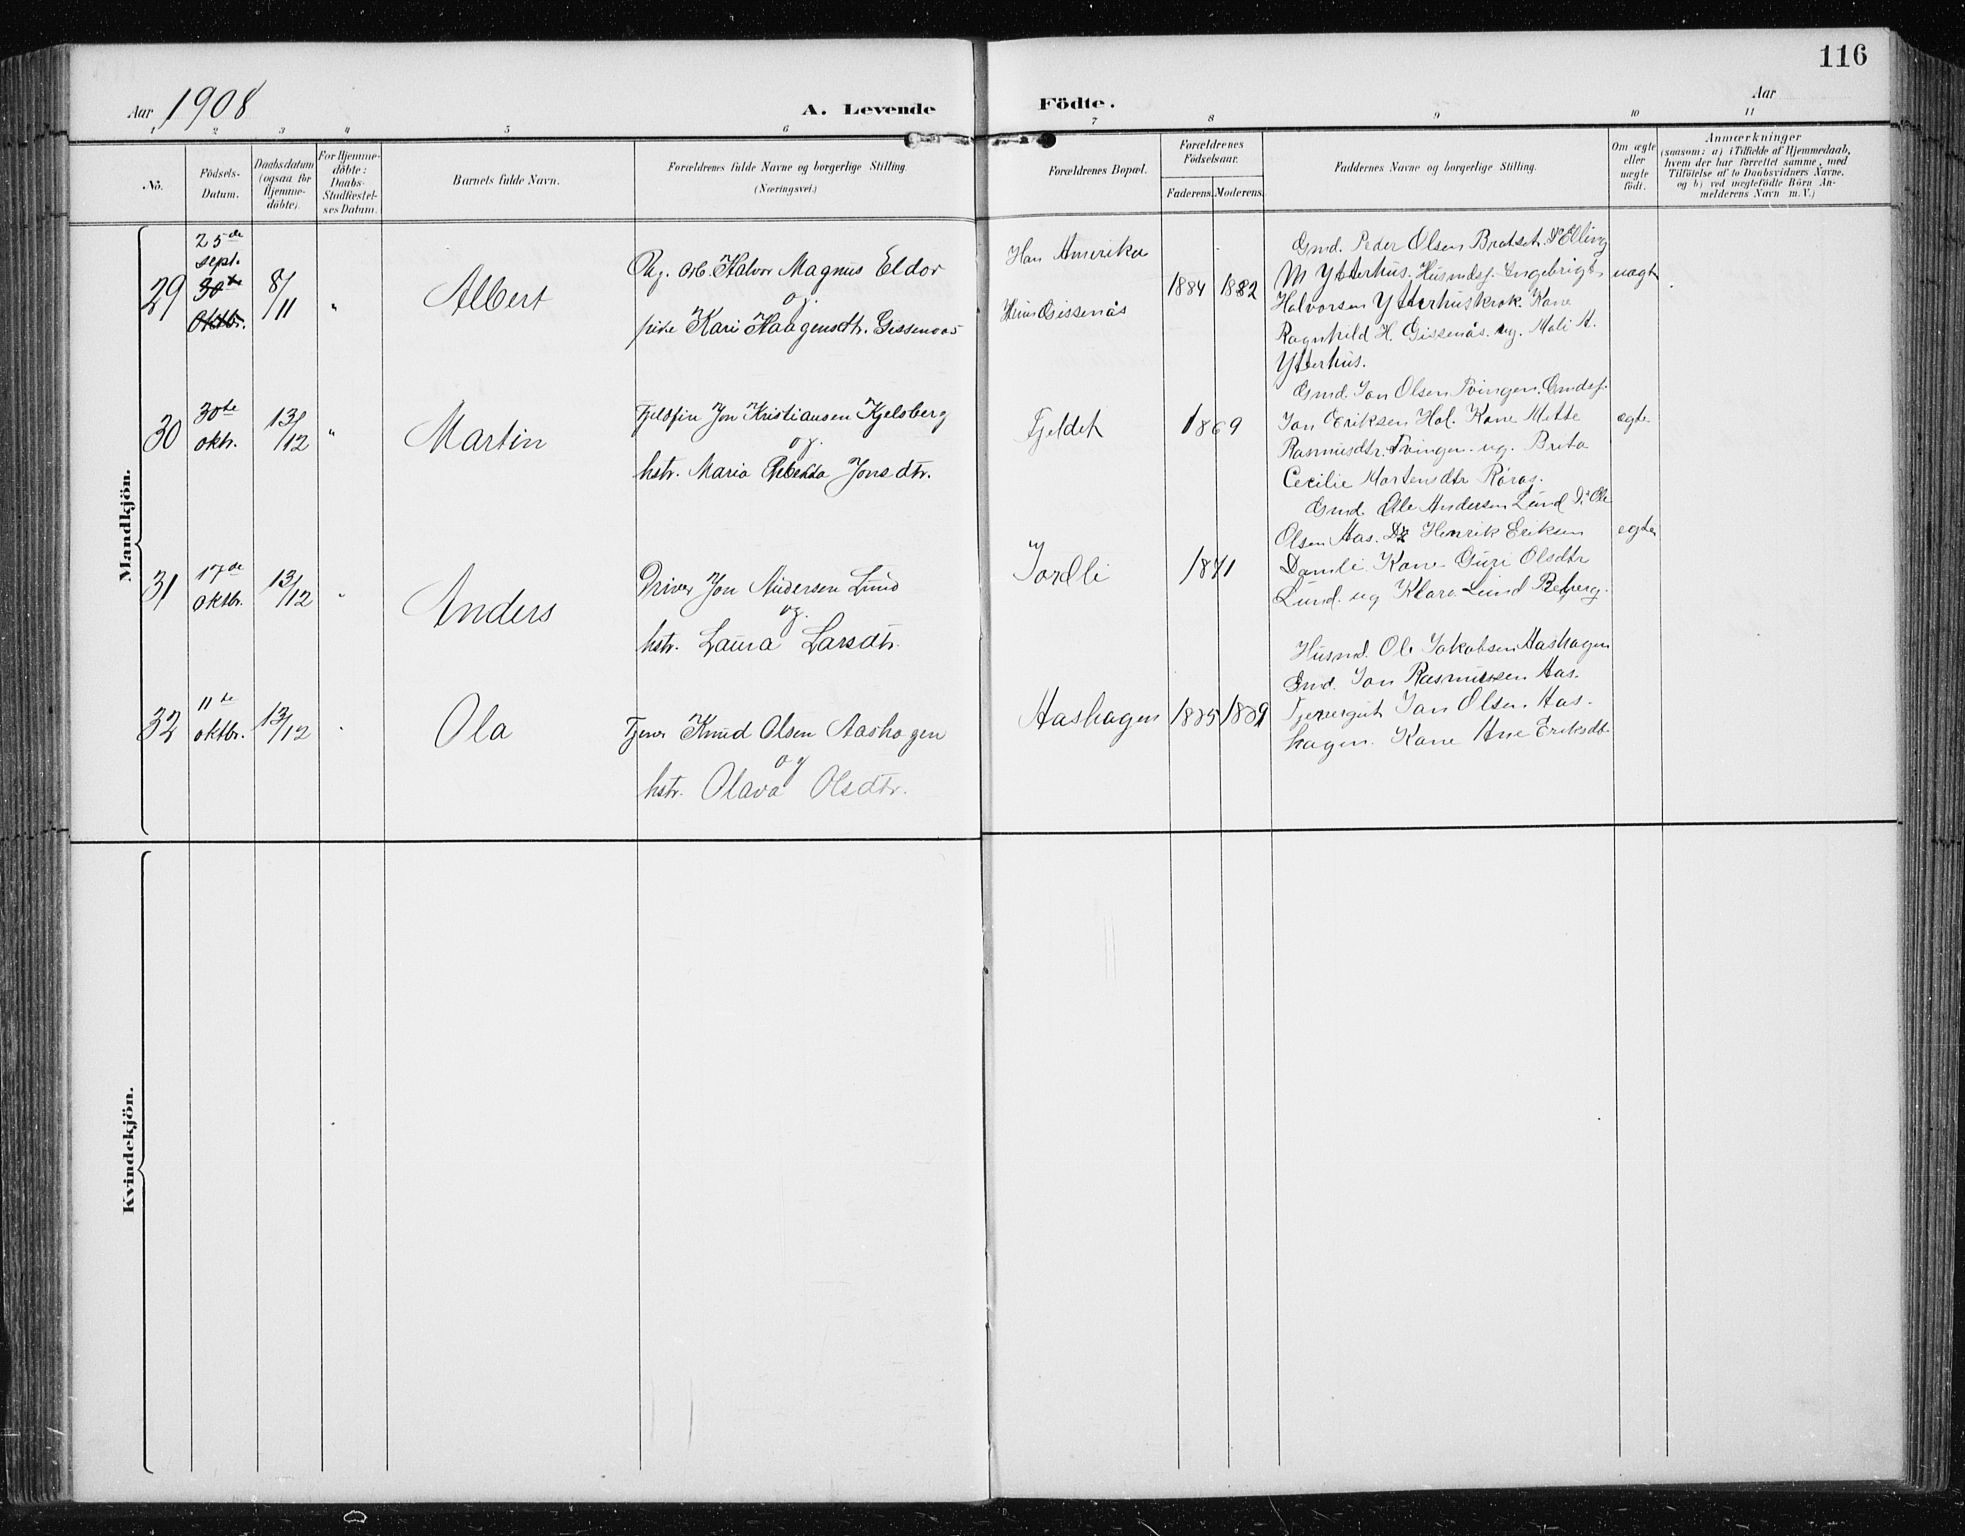 116
Aar 1908
A. Levende Födte.
Aar
1 2 3 4 5 6 7 8 9 10 11
No.
Födsels-
Datum.
Daabsdatum
(ogsaa for
Hjemme-
döbte).
For Hjemme-
döbte:
Daabs-
Stadfæstel-
ses Datum.
Barnets fulde Navn.
Forældrenes fulde Navne og borgerlige Stilling.
(Næringsvei.)
Forældrenes Bopæl.
Forældrenes
Födselsaar.
Faderens. Moderens.
Faddernes Navne og borgerlige Stilling.
Om ægte
eller
uægte
födt.
Anmærkninger
(saasom: a) i Tilfælde af Hjemmedaab,
hvem der har forrettet samme, med
Tilföielse af to Daabsvidners Navne,
og b) ved uægtefödte Börn An-
melderens Navn m. V.)
Mandkjön.
29
25de
sept.
30te
Oktbr.
8/11
"
Albert
Ug. Arb. Halvor Magnus Eldor
og
pike Kari Haagensdtr. Gissenaas
Han Amerika
Hun Gissenås
1884 1882
Gmd. Peder Olsen Bratset. Do Elling
M Ytterhus. Husmdsf. Ingebrigt
Halvorsen Ytterhuskrok. Kone
Ragnhild H. Gissenås. ug. Mali A.
Ytterhus.
uægte
30
30te
oktr.
13/12
"
Martin
Fjeldfin Jon Kristiansen Kjelsberg
og
hstr. Maria Rebekka Jonsdtr.
Fjeldet
1869
Gmd. Jon Olsen Tvingen. Gmdsf.
Jon Eriksen Hol. Kone Mette
Rasmusdtr. Tvingen. ug. Brita
Cecilie Mortensdtr Røros.
ægte
31
17de
oktbr.
13/12
"
Anders
Driver Jon Andersen Lund
og
hstr. Laura Larsdtr.
Jordli
1871
Gmd. Ole Andersen Lund Do Ole
Olsen Aas. Do Henrik Eriksen
Damli Kone Guri Olsdtr
Lund. ug Klara Lund Reberg.
egte
32
11te
oktbr.
13/12
"
Ola
Tjener Knud Olsen Aashagen
og
hstr. Olava Olsdtr.
Aashagen
Husmd. Ole Jakobsen Aashagen
Gmd. Jon Rasmussen Aas.
Tjenergut Jon Olsen Aas-
hagen. Kone Ane Eriksdtr
Kvindekjön.